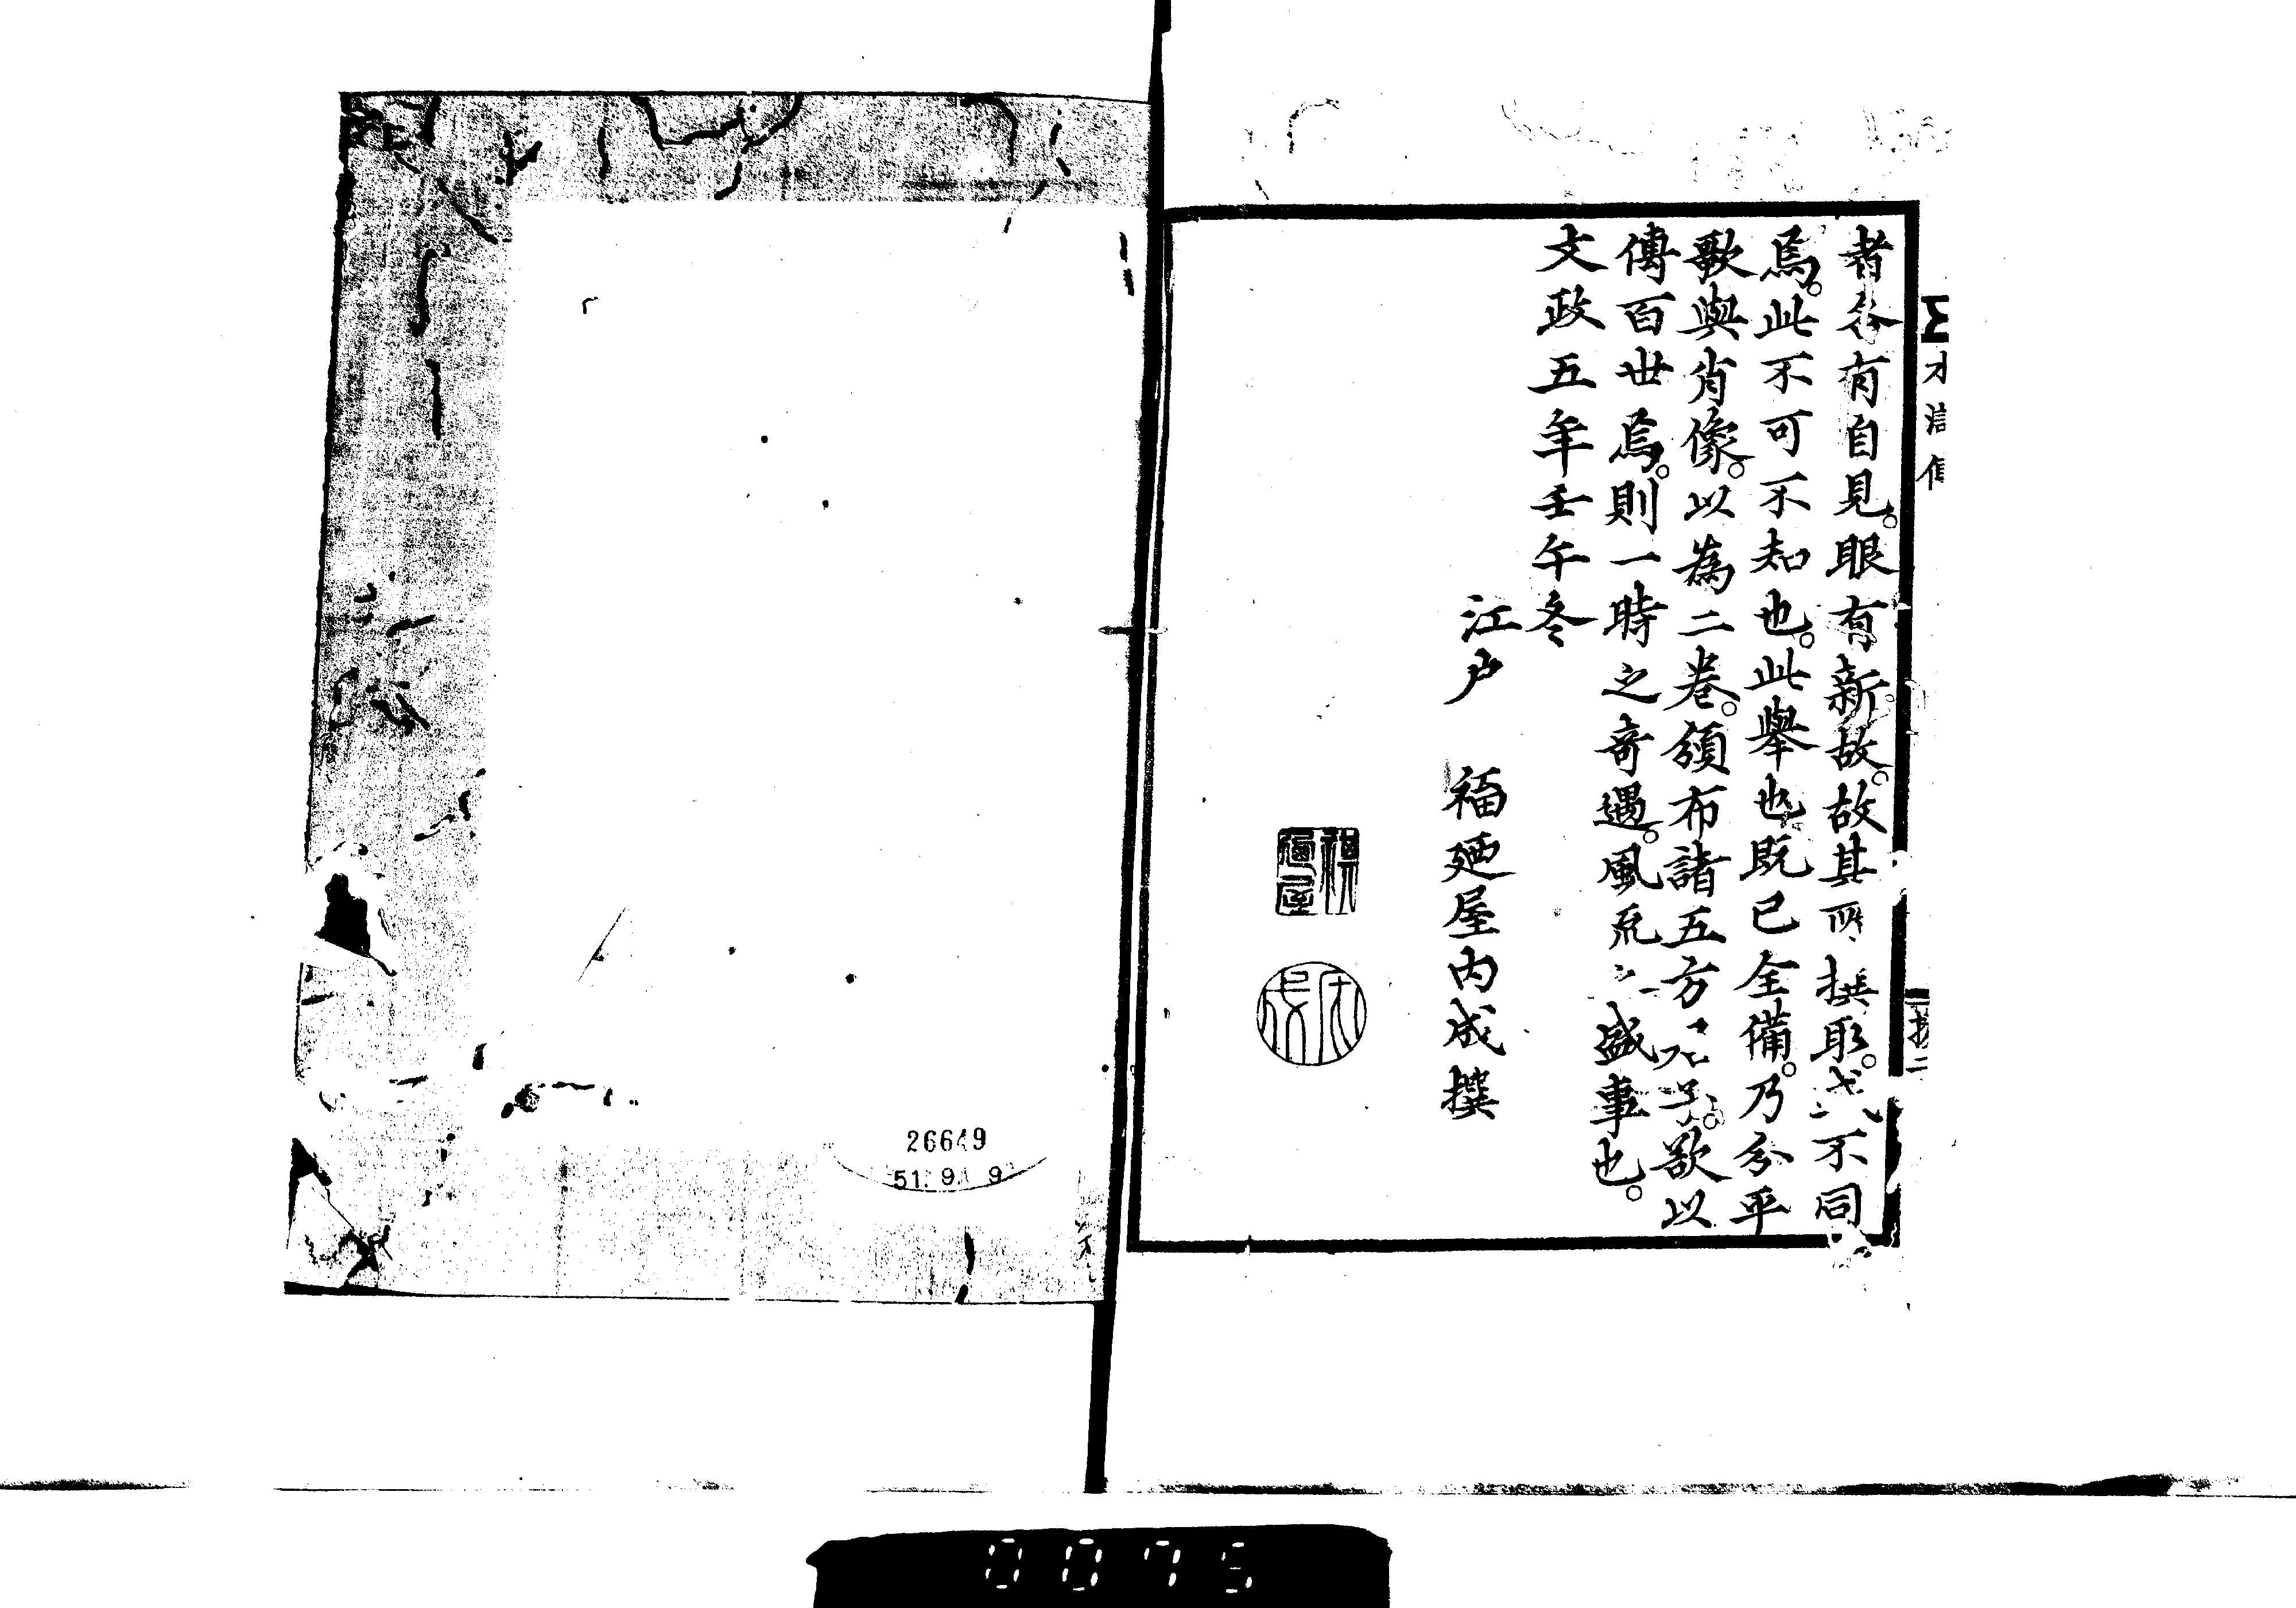 者各有自見。眼有新故。故其所撰取。或不同
焉。此不可不知也。此舉也既已全備。乃分平
歌與肖像。以為二卷。頒布諸五方君子。欲以
傳百世焉。則一時之奇遇。風流之盛事也。
文政五年壬午冬
江戶 福廼屋内成撰
福廼屋
内成
26649
51. 9. 9
0075